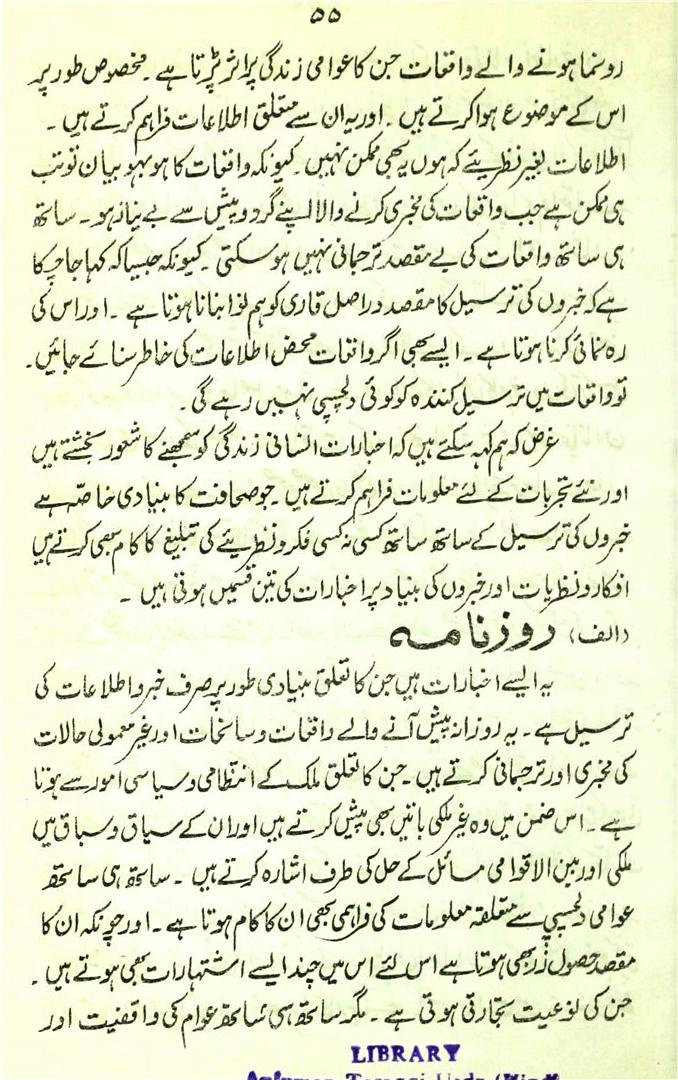 ۵۵
رونما ہونے والے واقعات جن کا عوامی زندگی پر اثر پڑتا ہے ۔ مخصوص طور پر
اس کے موضوع ہوا کرتے ہیں ۔ اور یہ ان سے متعلق اطلاعات فراہم کرتے ہیں ۔
اطلاعات بغیر نظریئے کہ ہوں یہ بھی ممکن نہیں ۔ کیونکہ واقعات کا ہو بہو بیان تو تب
ہی ممکن ہے جب واقعات کی مخبری کرنے والا اپنے گرد و پیش سے بے نیاز ہو ۔ ساتھ
ہی ساتھ واقعات کی بے مقصد ترجمانی نہیں ہو سکتی ۔ کیونکہ جیسا کہ کہا جا چکا
ہے کہ خبروں کی ترسیل کا مقصد دراصل قاری کو ہم نوا بنانا ہوتا ہے ۔ اور اس کی
رہ نمائی کرنا ہوتا ہے ۔ ایسے بھی اگر واقعات محض اطلاعات کی خاطر سنائے جائیں ۔
تو واقعات میں ترسیل کنندہ کو کوئی دلچسپی نہیں رہے گی ۔
غرض کہ ہم کہہ سکتے ہیں کہ اخبارات انسانی زندگی کو سمجھنے کا شعور بخشتے ہیں
اور نئے تجربات کے لئے معلومات فراہم کرتے ہیں ۔ جو صحافت کا بنیادی خاصّہ ہے
خبروں کی ترسیل کے ساتھ ساتھ کسی نہ کسی فکر و نظریئے کی تبلیغ کا کام بھی کرتے ہیں
افکار و نظریات اور خبروں کی بنیاد پر اخبارات کی تین قسمیں ہوتی ہیں ۔
(الف) روزنامہ
یہ ایسے اخبارات ہیں جن کا تعلق بنیادی طور پر صرف خبر و اطلاعات کی
ترسیل ہے ۔ یہ روزانہ پیش آنے والے واقعات و سانحات اور غیر معمولی حالات
کی مخبری اور ترجمانی کرتے ہیں ۔ جن کا تعلق ملک کے انتظامی و سیاسی امور سے ہوتا
ہے ۔ اس ضمن میں وہ غیر ملکی باتیں بھی پیش کرتے ہیں اور ان کے سیاق و سباق میں
ملکی اور بین الاقوامی مسائل کے حل کی طرف اشارہ کرتے ہیں ۔ ساتھ ہی ساتھ
عوامی دلچسپی سے متعلقہ معلومات کی فراہمی بھی ان کا کام ہوتا ہے ۔ اور چونکہ ان کا
مقصد حصول زر بھی ہوتا ہے اس لئے اس میں چند ایسے اشتہارات بھی ہوتے ہیں ۔
جن کی نوعیت تجارتی ہوتی ہے ۔ مگر ساتھ ہی ساتھ عوام کی واقفیت اور
LIBRARY